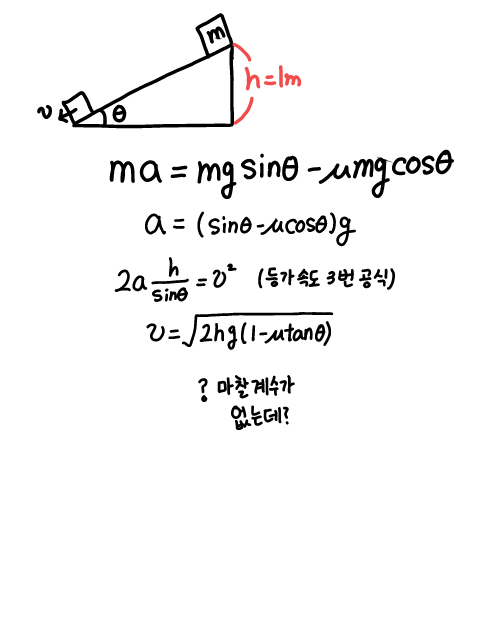 m
h=1m
v θ
ma = mg sinθ - μmg cosθ
a = (sinθ - μcosθ)g
2a h/sinθ = v² (등가속도 3번 공식)
v = √2hg(1-μtanθ)
? 마찰계수가
없는데?